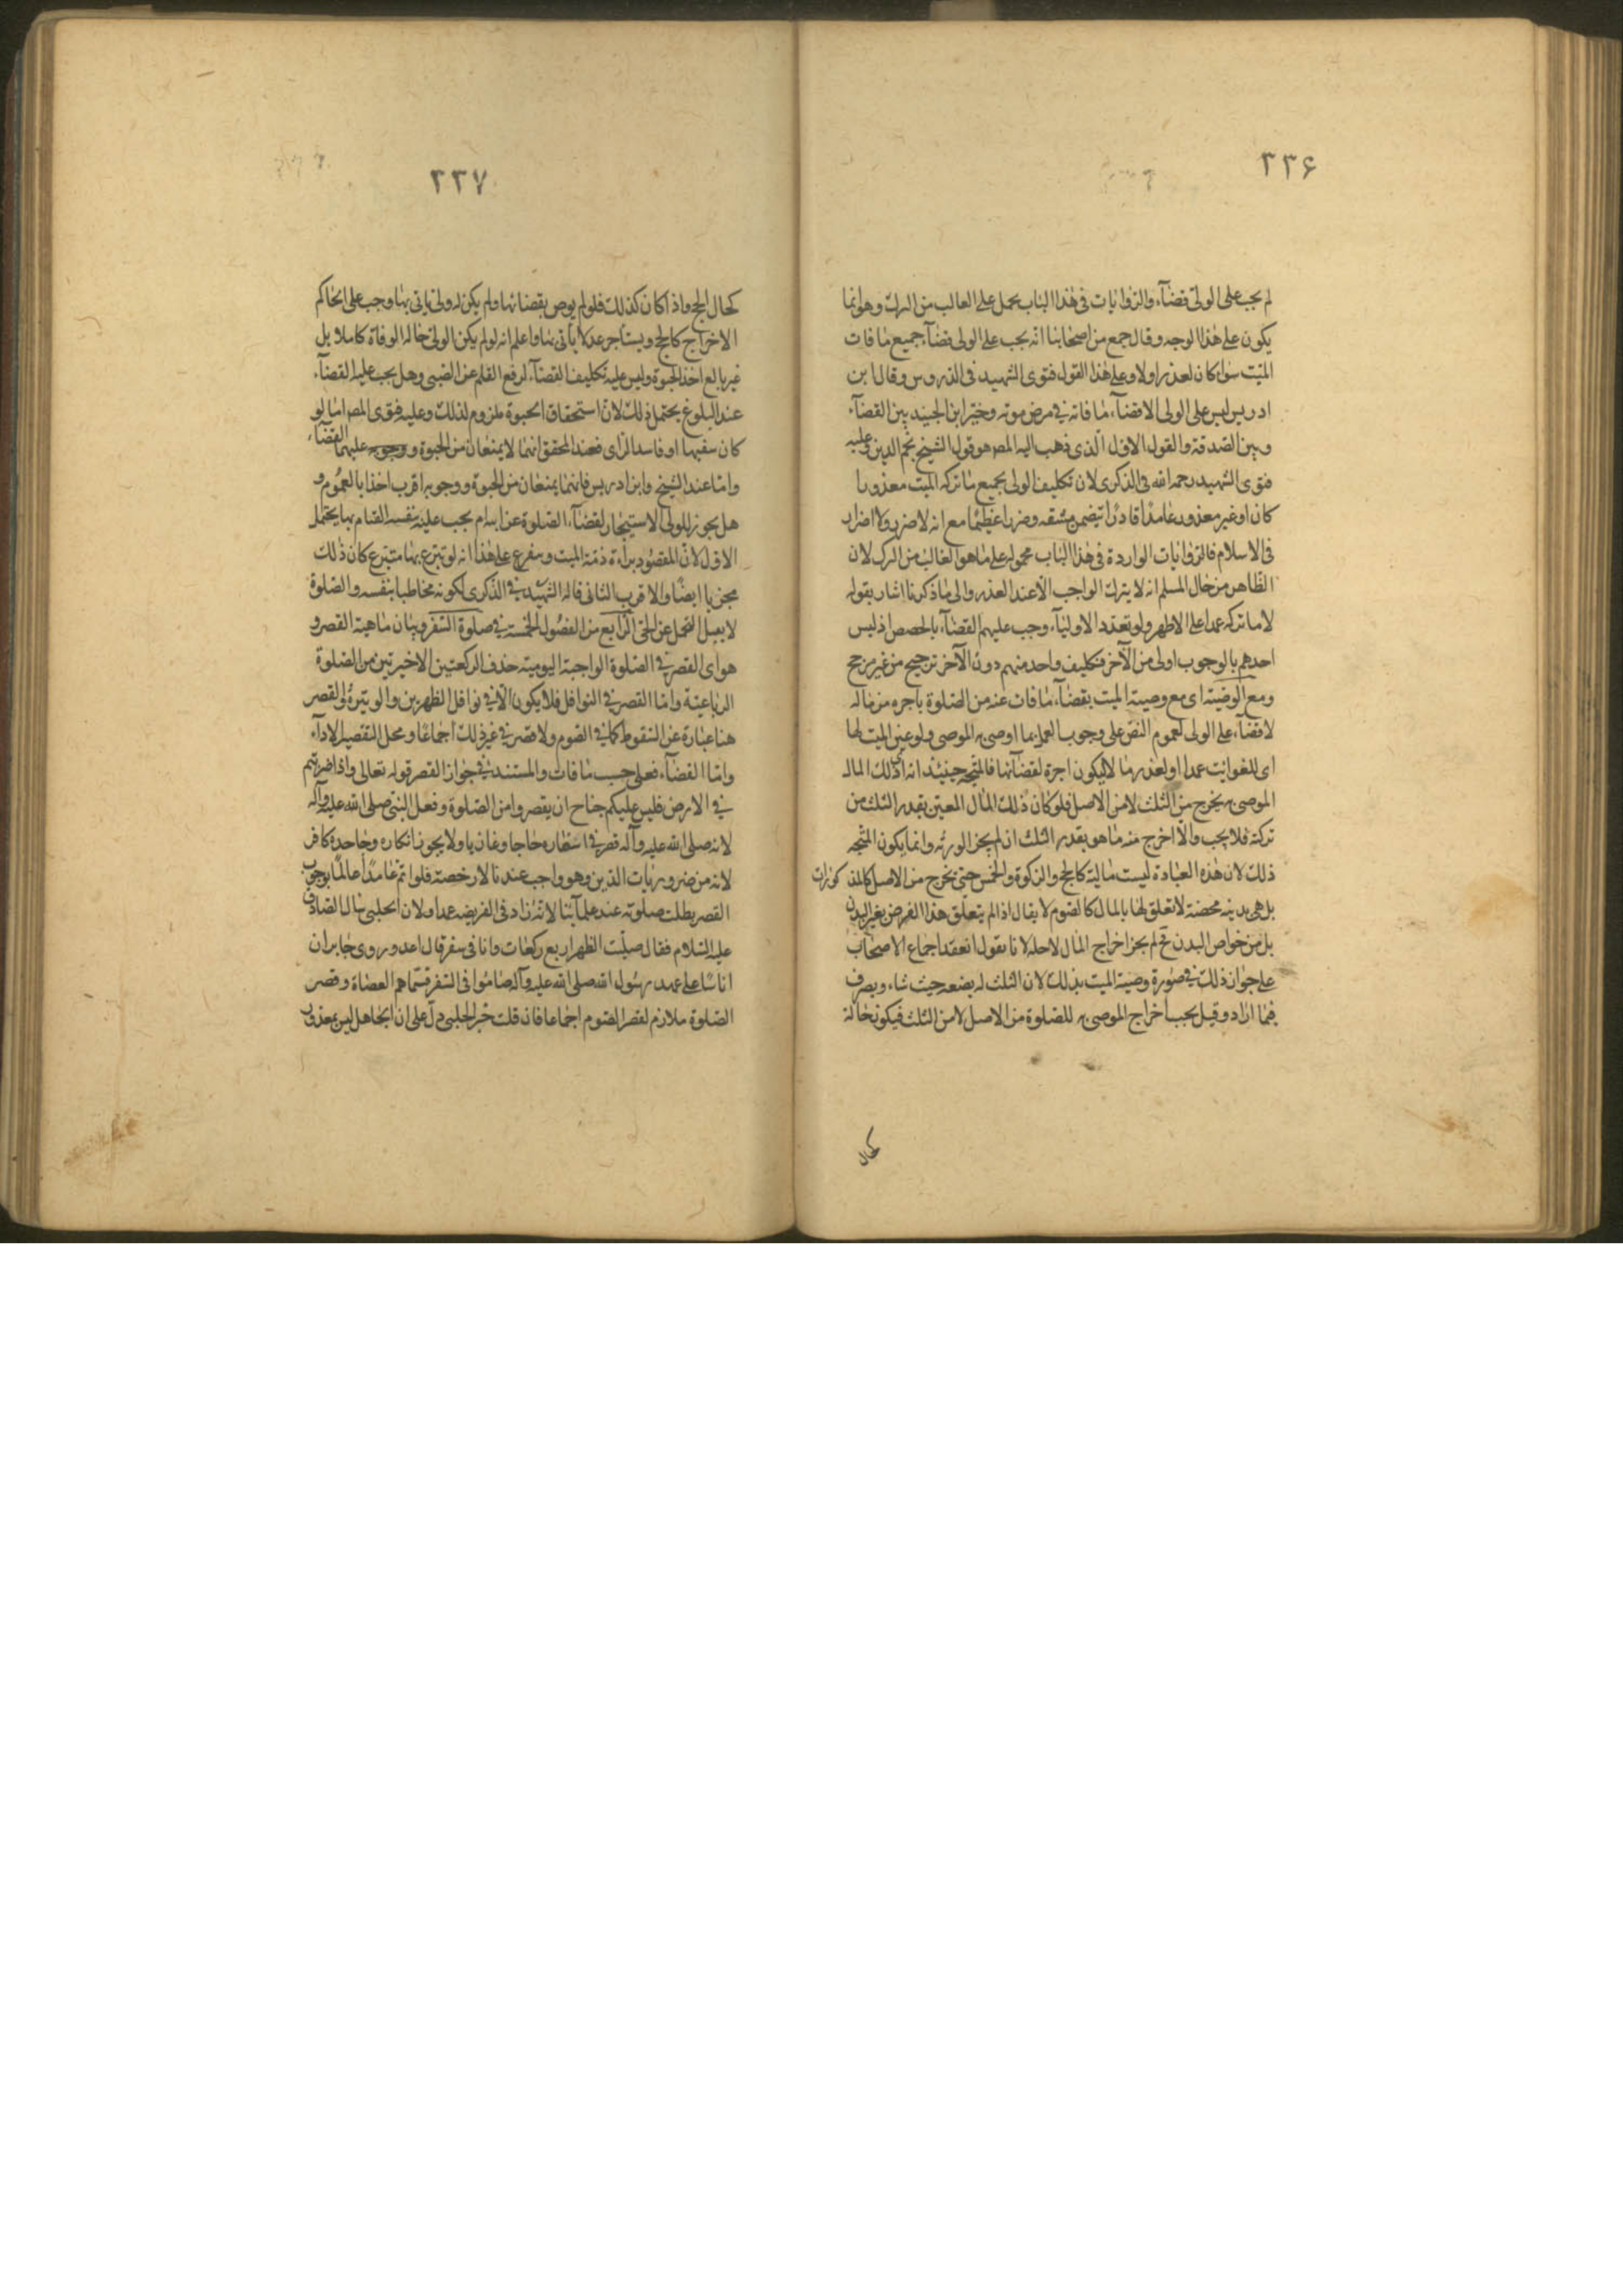 ٢٣۶
لم يجب على الولى قضآء والرّوايات فى هذا الباب يحمل على الغالب من الترك وهو انما
يكون على هذا الوجه وقال جمع من اصحابنا انّه يجب على الولى قضآء جميع ما فات
الميّت سواء كان لعذر اولا وعلى هذا القول فتوى الشهيد فى الدروس وقال ابن
ادريس ليس على الولى الا قضآء ما فاته فى مرض موته وخيّر ابن الجنيد بين القضآء
وبين الصدقة والقول الاول الّذى ذهب اليه المصر هو قول الشيخ نجم الدين وعليه
فتوى الشهيد رحمه الله فى الذكرى لان تكليف الولى بجميع ما تركه الميت معذورا
كان او غير معذور عامدًا قادرًا يتضمن مشقه وضررا عظيمًا مع انه لا ضرر ولا اضرار
فى الاسلام فالرّوايات الواردة فى هذا الباب محموله على ما هو الغالب من الترك لان
الظّاهر من حال المسلم انه لا يترك الواجب الّا عند العذر والى ما ذكرنا اشار بقوله
لا ما تركه عمدا على الاظهر ولو تعدّد الاوليآء وجب عليهم القضآء بالحصص اذ ليس
احدهم بالوجوب اولى من الآخر فتكليف واحد منهم دون الآخر ترجيح من غير مرجح
ومع الوصيّة اى مع وصيّة الميت بقضآء ما فات عنه من الصّلوة باجره من ماله
لا قضآء على الولى لعموم النصّ على وجوب العمل بما اوصى به الموصى ولو عيّن الميت لها
اى للفوايت عمدا او لعذر مالا ليكون اجرة لقضآئها فالمتّجه حينئذ انه اى ذلك المال
الموصى به يخرج من الثلث لا من الاصل فلو كان ذلك المال المعيّن بقدر الثلث من
تركته فلا يجب والّا اخرج منه ما هو بقدر الثلث ان لم يجز الورثه وانما يكون المتّجه
ذلك لان هذه العبادة ليست ماليّة كالحج والزكوة والخمس حتى يخرج من الاصل كالمذكورات
بل هى بدنيه محضة لا تعلق لها بالمال كالصّوم لا يقال اذا لم يتعلّق هذا الفرض بغير البدن
بل من خواص البدن فح لم يجز اخراج المال لاجله لانا نقول انعقد اجماع الاصحاب
على جواز ذلك فى صورة وصية الميت بذلك لان الثلث له يضعه حيث شاء ويصرف
فيما اراد وقيل يجب اخراج الموصى به للصّلوة من الاصل لا من الثلث فيكون حاله
كحال
٢٣٧
كحال الحج واذا كان كذلك فلو لم يوص بقضائها ولم يكن له ولى ياتى بها وجب على الحاكم
الاخراج كالحج ويستاجر عدلا ياتى بها واعلم انه لو لم يكن الولى حاله الوفاة كاملا بل
غير بالع اخذ الحبوة وليس عليه تكليف القضآء لرفع القلم عن الصّبى وهل يجب عليه القضآء
عند البلوغ يحتمل ذلك لان استحقاق الحبوة ملزوم لذلك وعليه فتوى المصر امّا لو
كان سفيها او فاسد الرّاى فعند المحقق انهما لا يمنعان من الحبوة ووجوب عليهما القضآء
وامّا عند الشيخ وابن ادريس فانهما يمنعان من الحبوة ووجوبه اقرب اخذا بالعموم و
هل يجوز للولى الاستيجار لقضآء الصّلوة عن ابيه ام يجب عليه بنفسه القيام بها يحتمل
الاول لانّ المقصود براءة ذمّة الميت ويتفرع على هذا انه لو تبرّع بها متبرّع كان ذلك
مجزيا ايضًا والاقرب الثانى قاله الشهيد فى الذكرى لكونه مخاطبا بنفسه والصّلوة
لا يقبل التحمل عن الحىّ الرّابع من الفصول الخمسة فى صلوة السّفر وبيان ماهية القصر و
هو اى القصر فى الصّلوة الواجبة اليومية حذف الركعتين الاخيرتين من الصّلوة
الرّباعيّة وامّا القصر فى النوافل فلا يكون الّا فى نوافل الظهرين والوتيرة والقصر
هنا عبارة عن السّقوط كما فى الصّوم ولا قصر فى غير ذلك اجماعًا ومحل التقصير الادآء
وامّا القضآء فعلى حسب ما فات والمستند فى جواز القصر قوله تعالى واذا ضربتم
فى الارض فليس عليكم جناح ان يقصروا من الصّلوة وفعل النّبى صلى الله عليه وآله
لانه صلى الله عليه وآله قصر فى اسفاره حاجا وغازيا ولا يجوز انكاره وجاحده كافر
لانه من ضروريات الدّين وهو واجب عندنا لا رخصة فلو اتمّ عامدًا عالمًا بوجوب
القصر بطلت صلوته عند علمآئنا لانّه زاد فى الفريضه عمدا ولان الحلبى سال الصّادق
عليه السّلام فقال صلّيت الظهر اربع ركعات وانا فى سفر قال اعد وروى جابر ان
اناسًا على عهد رسول الله صلى الله عليه وآله صاموا فى السّفر فسمّاهم العصاة وقصر
الصّلوة ملازم لقصر الصّوم اجماعا فان قلت خبر الحلبى دلّ على ان الجاهل ليس بمعذور